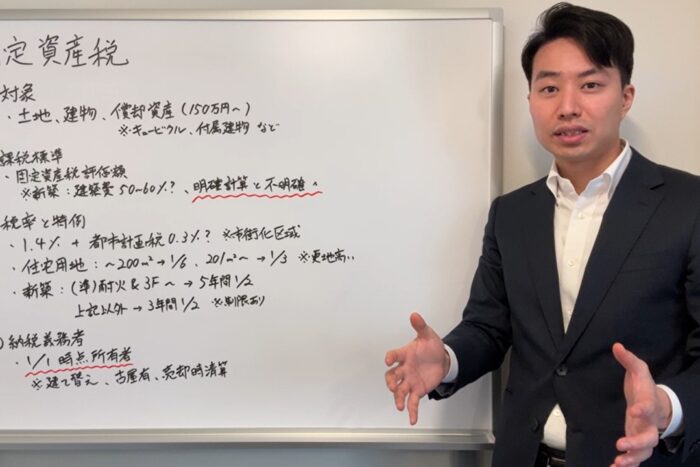 定資産税
対象
・土地、建物、償却資産（150万円〜）
※キュービクル、付属建物 など
課税標準
・固定資産税評価額
※新築：建築費 50~60%？、明確計算と不明確
税率と特例
・1.4% + 都市計画税 0.3%？ ※市街化区域
・住宅用地：〜200㎡→1/6、201㎡〜→1/3 ※更地高い
・新築：(準)耐火 & 3F〜→5年間1/2
上記以外→3年間1/2 ※制限あり
)納税義務者
・1/1時点所有者
※建て替え、古屋有、売却時清算